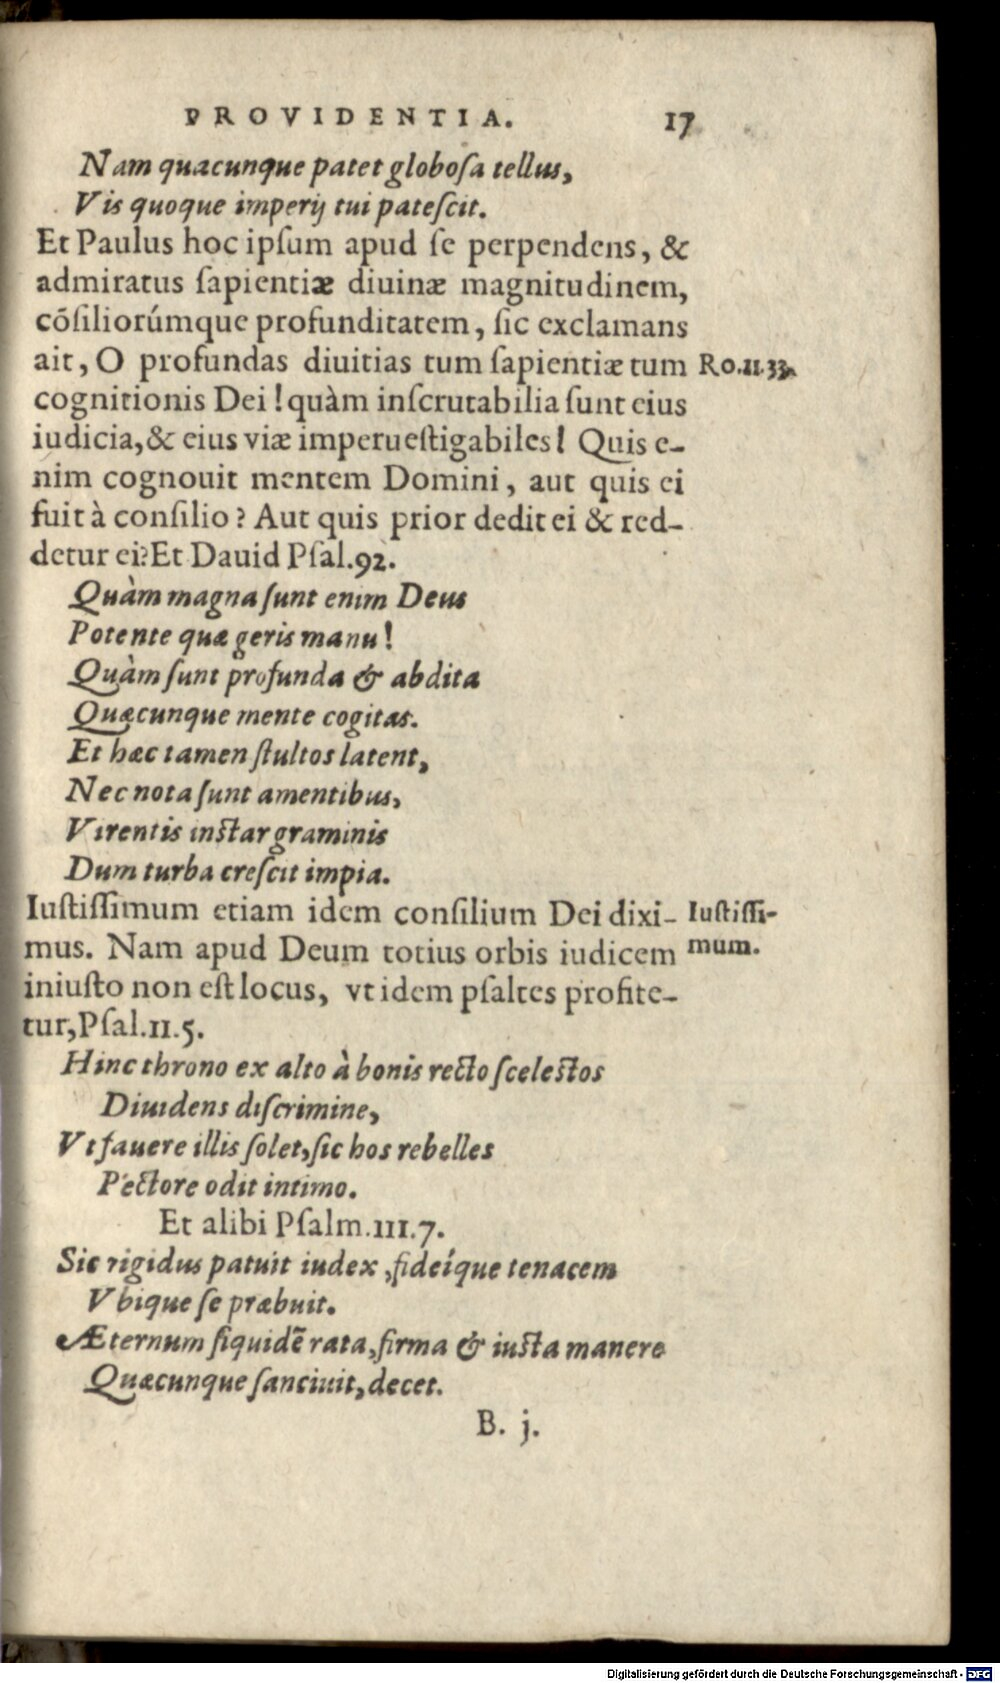 PROVIDENTIA. 17
Nam quacunque patet globoſa tellus,
Vis quoque imperij tui pateſcit.
Et Paulus hoc ipſum apud ſe perpendens, &
admiratus ſapientiæ diuinæ magnitudinem,
cõſiliorúmque profunditatem, ſic exclamans
ait, O profundas diuitias tum ſapientiæ tum Ro.11.33.
cognitionis Dei! quàm inſcrutabilia ſunt eius
iudicia, & eius viæ imperueſtigabiles! Quis e-
nim cognouit mentem Domini, aut quis ei
fuit à conſilio? Aut quis prior dedit ei & red-
detur ei? Et Dauid Pſal.92.
Quàm magna ſunt enim Deus
Potente quæ geris manu!
Quàm ſunt profunda & abdita
Quæcunque mente cogitas.
Et hæc tamen ſtultos latent,
Nec nota ſunt amentibus,
Virentis inſtar graminis
Dum turba creſcit impia.
Iuſtiſſimum etiam idem conſilium Dei dixi- Iuſtiſſi-
mus. Nam apud Deum totius orbis iudicem mum.
iniuſto non eſt locus, vt idem pſaltes profite-
tur, Pſal.11.5.
Hinc throno ex alto à bonis recto ſceleſtos
Diuidens diſcrimine,
Vt fauere illis ſolet, ſic hos rebelles
Pectore odit intimo.
Et alibi Pſalm.111.7.
Sic rigidus patuit iudex, fideíque tenacem
Vbique ſe præbuit.
Æternum ſiquidẽ rata, firma & iuſta manere
Quæcunque ſanciuit, decet.
B. j.
Digitalisierung gefördert durch die Deutsche Forschungsgemeinschaft - DFG